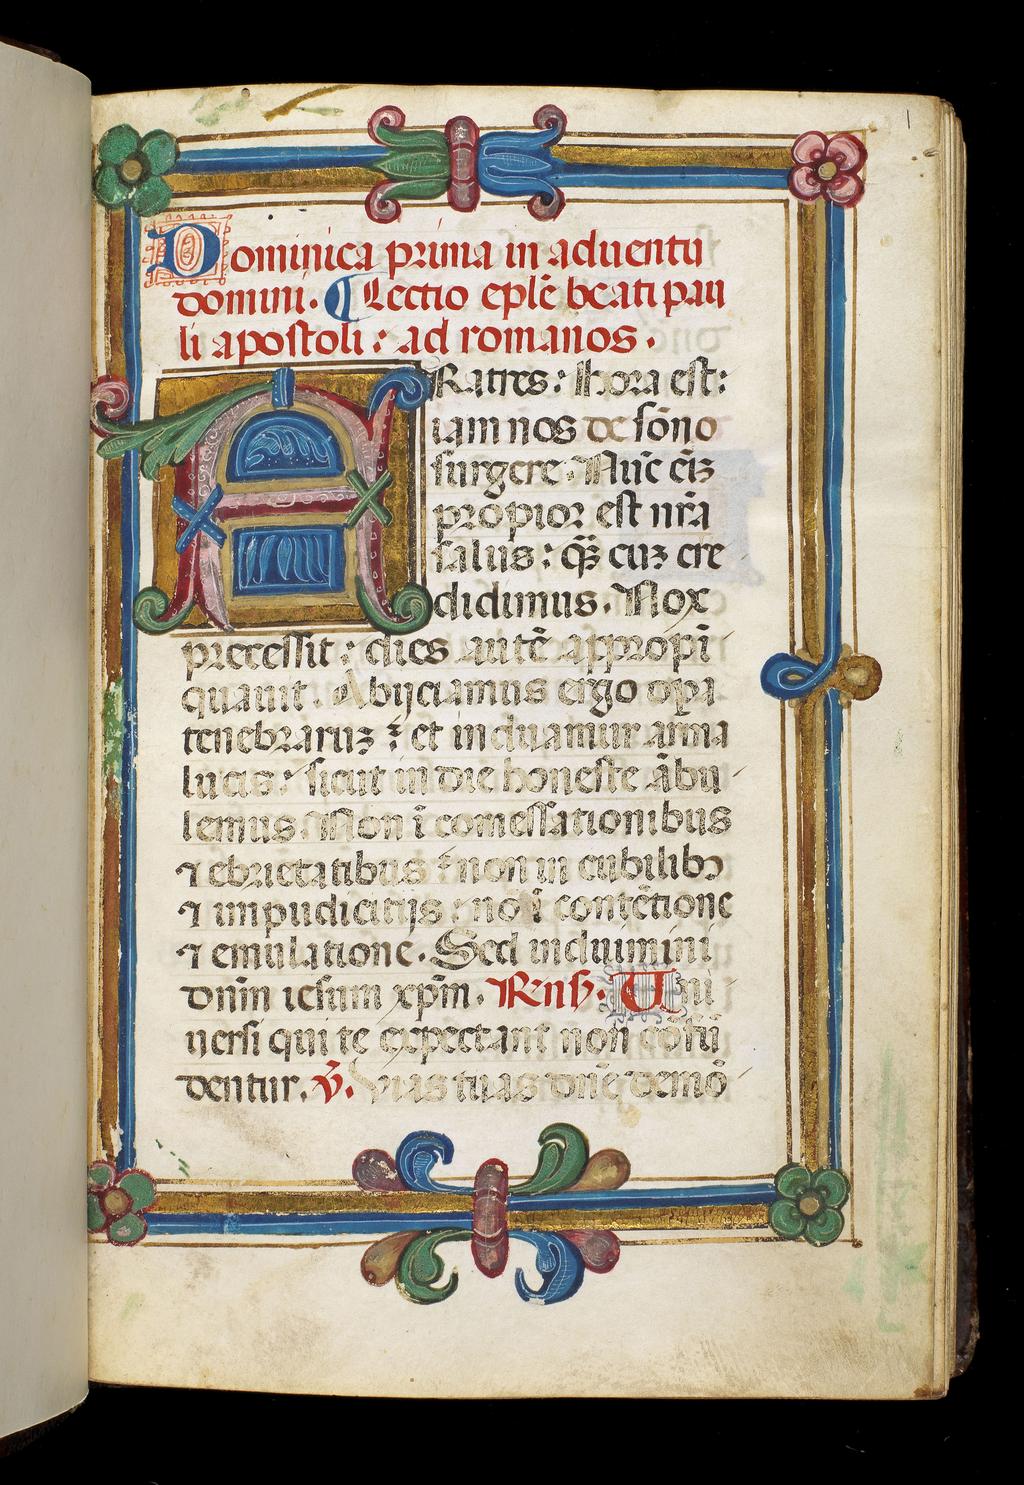 1
Dominica prima in aduentu
domini. ¶ Lectio eplē beati pau
li apostoli: ad romanos.
FRatres: hora est:
iam nos de sōno
surgere. Nūc eīz
propior est nrā
salus: qȝ cuȝ cre
didimus. Nox
precessit: dies autē appropī
quauit. Abijciamus ergo opa
tenebraruȝ: et induamur arma
lucis: sicut in die honeste ābu
lemus. Non ī comessationibus
⁊ ebrietatibus: non in cubilibȝ
⁊ impudicitijs: nō ī contētione
⁊ emulatione. Sed induimini
dnm̄ iesum xpm̄. Rnſ. Uni
uersi qui te expectant non cōfū
dentur. ℣. Vias tuas dnē demō